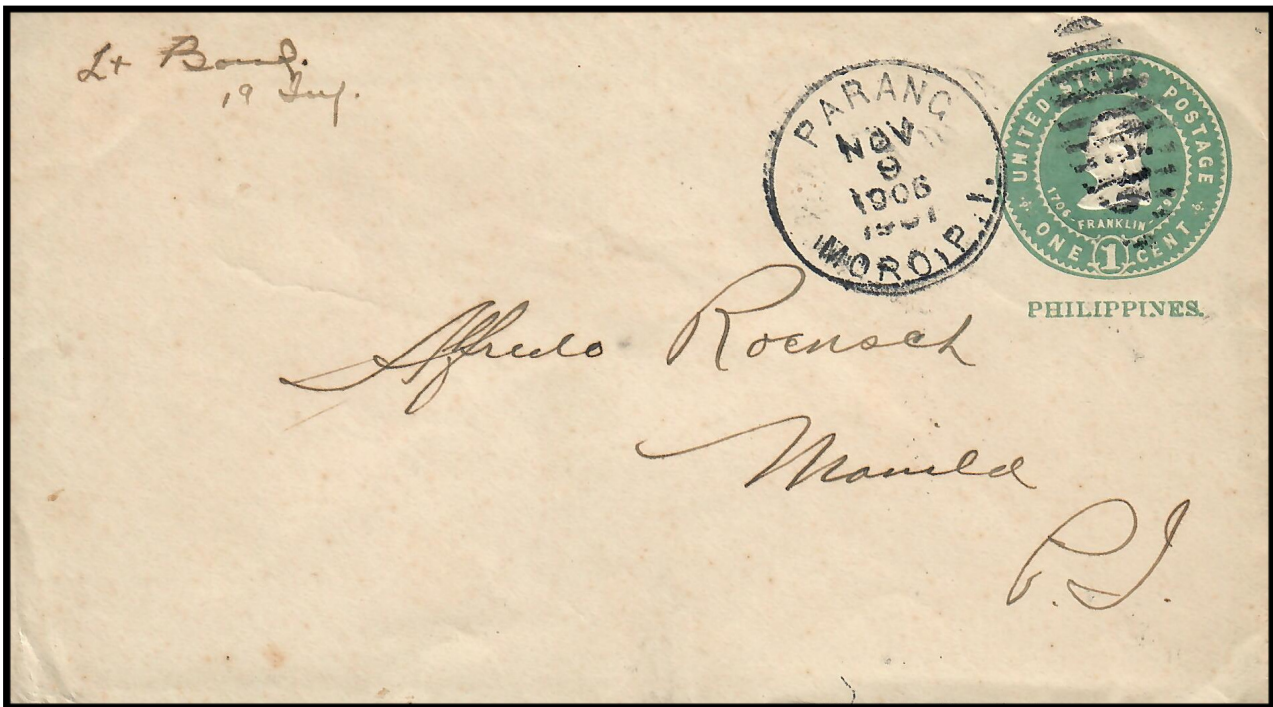 Lt Bond.
19 Inf.
PARANG
NOV
9
1906
MORO P.I.
UNITED STATES POSTAGE
1706 - FRANKLIN
ONE 1 CENT
PHILIPPINES.
Alfredo Roensch
Manila
P.I.